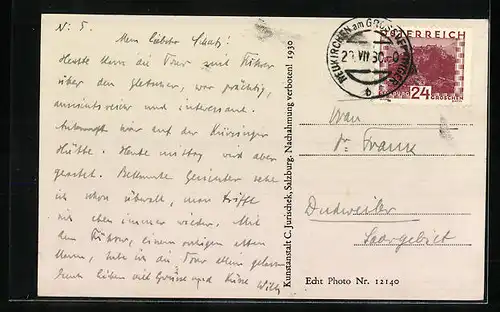 No: 5.
Mein liebster Schatz!
Heute kam die Tour mit Führer
über den Gletscher, war prächtig,
aussichtsreich und interessant.
war auf der Kürsinger
Hütte. Heute mittag wird aber
gerastet. Bekannte Gesichter sehe
ich schon überall, man trifft
sich eben immer wieder. Mit
dem Führer, einem alten
Herrn, habe ich die Tour allein
lieben viel Grüsse und Küsse Willy
Kunstanstalt C. Jurischek, Salzburg. Nachahmung verboten! 1930
NEUKIRCHEN am GROSSVENEDIGER
29.VII.30
b
ÖSTERREICH
24
GROSCHEN
Frau
Dr. Franke
Dudweiler
Saargebiet
Echt Photo Nr. 12140